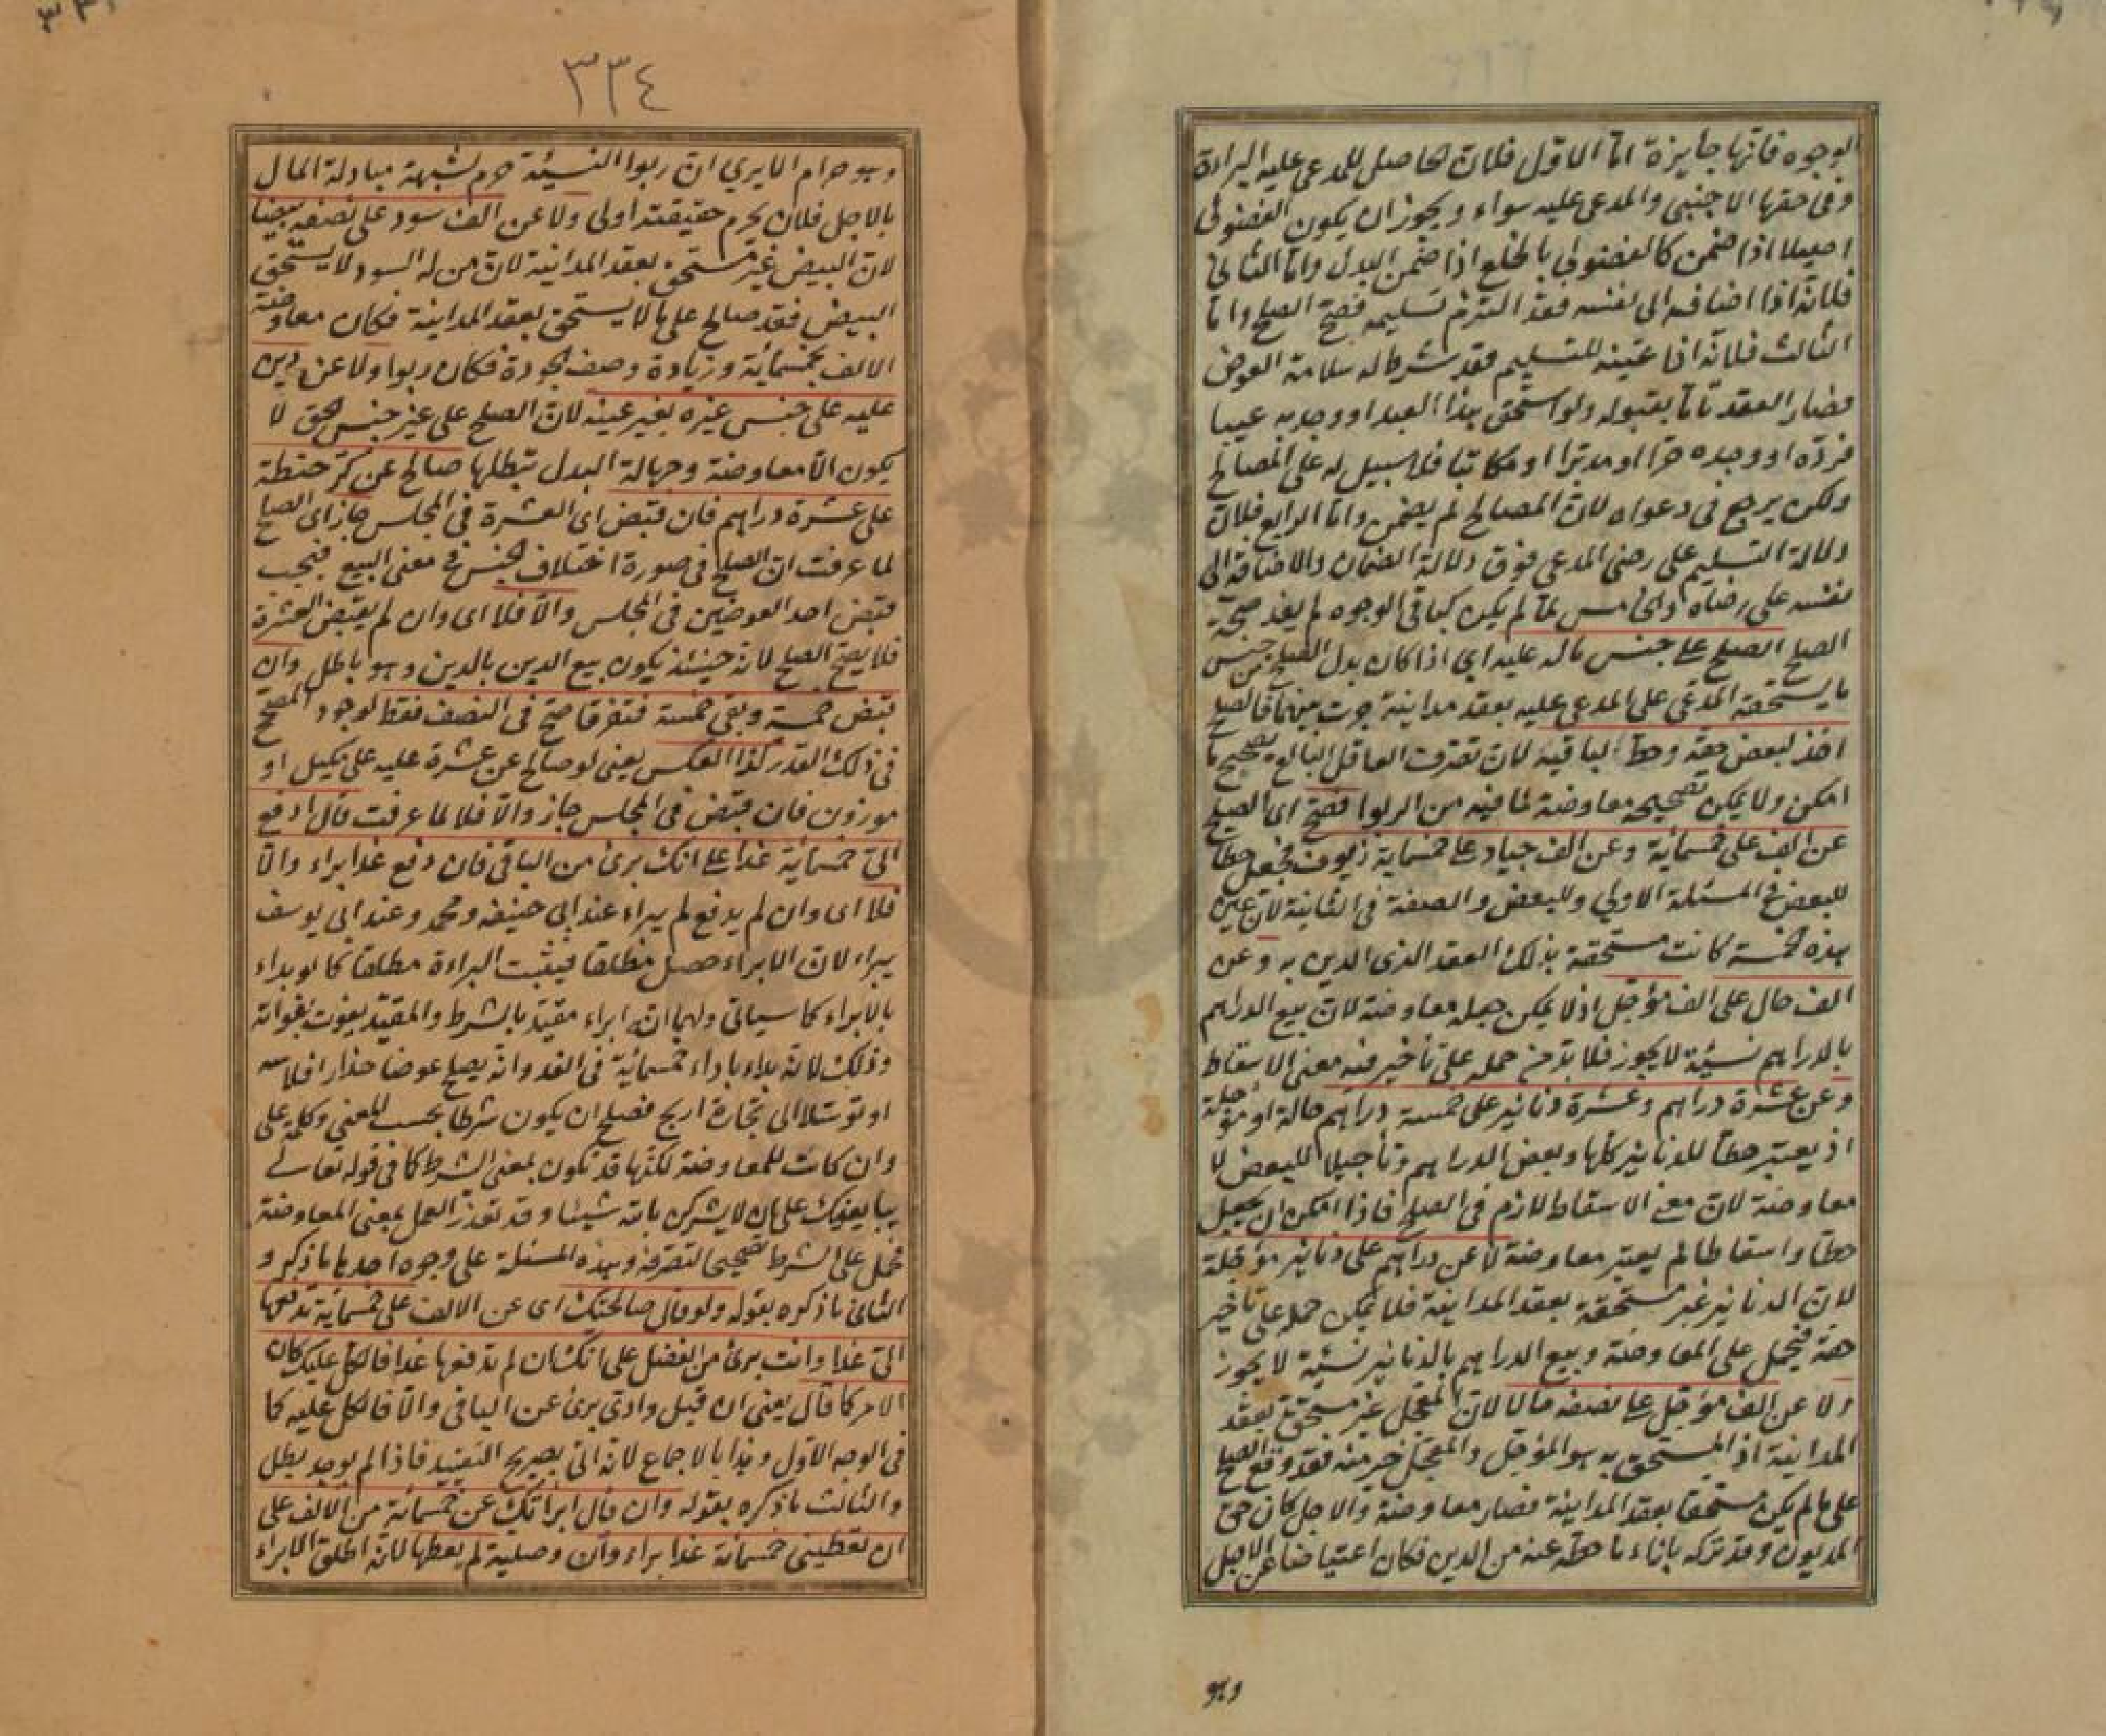 لوجوه فانها جايزة اما الاول فلان الحاصل للمدعى عليه البراءة
وفى حقها الاجنبى والمدعى عليه سواء ويجوز ان يكون الفضولى
اصيلا اذا ضمن كالفضولى بالخلع اذا ضمن البدل واما الثانى
فلانه اذا اضافه الى نفسه فقد التزم تسليمه فصح الصلح واما
الثالث فلانه اذا عينه للتسليم فقد شرط له سلامة العوض
فصار العقد تاما بقبوله ولو استحق هذا العبد او وجد به عيبا
فرده او وجده حرا او مدبرا او مكاتبا فلا سبيل له على المصالح
ولكن يرجع فى دعواه لان المصالح لم يضمن واما الرابع فلان
دلالة التسليم على رضى المدعى فوق دلالة الضمان والاضافة الى
نفسه على رضاه لم يكن كباقى الوجوه لم يفد صحة
الصلح الصلح على جنس ماله عليه اى اذا كان بدل الصلح من جنس
ما يستحقه المدعى على المدعى عليه بعقد مداينة جرت بينهما فالصلح
اخذ لبعض حقه وحط لباقيه لان تصرف العاقل البالغ يصحح ما
امكن ولا يمكن تصحيحه معاوضة لما فيه من الربوا فصح اى الصلح
عن الف على خمسمائة وعن الف جياد على خمسماية زيوف فجعل حطا
للبعض فى المسئلة الاولى وللبعض والصفة فى الثانية لان عين
هذه الخمسة كانت مستحقة بذلك العقد الذى الدين به وعن
الف حال على الف مؤجل اذ لا يمكن جعله معاوضة لان بيع الدراهم
بالدراهم نسيئة لا يجوز فلا بد من حمله على تأخير فيه معنى الاسقاط
وعن عشرة دراهم وعشرة دنانير على خمسة دراهم حالة او مؤجلة
اذ يعتبر حطا للدنانير كلها وبعض الدراهم وتأجيلا للبعض لا
معاوضة لان معنى الاسقاط لازم فى الصلح فاذا امكن ان يجعل
حطا واسقاطا لم يعتبر معاوضة لا عن دراهم على دنانير مؤجلة
لان الدنانير غير مستحقة بعقد المداينة فلا يمكن حمله على تأخير
حقه فيحمل على المعاوضة وبيع الدراهم بالدنانير نسيئة لا يجوز
ولا عن الف مؤجل على نصفه حالا لان المعجل غير مستحق بعقد
المداينة اذ المستحق به هو المؤجل والمعجل خير منه فقد وقع الصلح
على ما لم يكن مستحقا بعقد المداينة فصار معاوضة والاجل كان حق
المديون وقد تركه بازاء ما حطه عنه من الدين فكان اعتياضا عن الاجل
وهو
٣٣٤
وهو حرام الا يرى ان ربوا النسيئة حرم لشبهة مبادلة المال
بالاجل فلان يحرم حقيقته اولى ولا عن الف سود على نصفه بيضا
لان البيض غير مستحق بعقد المداينة لان من له السود لا يستحق
البيض فقد صالح على ما لا يستحق بعقد المداينة فكان معاوضة
الالف بخمسمائة وزيادة وصف الجودة فكان ربوا ولا عن دين
عليه على جنس غيره بغير عينه لان الصلح على غير جنس الحق لا
يكون الا معاوضة وجهالة البدل تبطلها صالح عن كر حنطة
على عشرة دراهم فان قبض اى العشرة فى المجلس جاز اى الصلح
لما عرفت ان الصلح فى صورة اختلاف الجنس فى معنى البيع فيجب
قبض احد العوضين فى المجلس والا فلا اى وان لم يقبض العشرة
فلا يصح الصلح لانه حينئذ يكون بيع الدين بالدين وهو باطل وان
قبض خمسة وبقى خمسة فتفرقا صح فى النصف فقط لوجود المصحح
فى ذلك القدر كذا العكس يعنى لو صالح عن عشرة عليه على مكيل او
موزون فان قبض فى المجلس جاز والا فلا لما عرفت قال ادفع
الى خمسمائة غدا على انك برئ من الباقى فان دفع غدا براء والا
فلا اى وان لم يدفع لم يبراء عند ابى حنيفه ومحمد وعند ابى يوسف
يبراء لان الابراء حصل مطلقا فيثبت البراءة مطلقا كما لو بداء
بالابراء كما سياتى ولهما انه ابراء مقيد بالشرط والمقيد يفوت بفواته
وذلك لانه بداء باداء خمسمائة فى الغد وانه يصلح عوضا حذار افلاسه
او توسلا الى تجارة اربح فصلح ان يكون شرطا بحسب المعنى وكلمة على
وان كانت للمعاوضة لكنها قد تكون بمعنى الشرط كما فى قوله تعالى
يبايعنك على ان لا يشركن بالله شيئا وقد تعذر العمل بمعنى المعاوضة
فحمل على الشرط تصحيحا لتصرفه وهذه المسئلة على وجوه احدها ما ذكر و
الثانى ما ذكره بقوله ولو قال صالحتك اى عن الالف على خمسمائة تدفعها
الى غدا وانت برئ من الفضل على انك ان لم تدفعها غدا فالكل عليك كان
الامر كما قال يعنى ان قبل وادى برئ عن الباقى والا فالكل عليه كما
فى الوجه الاول وهذا بالاجماع لانه اتى بصريح التقييد فاذا لم يوجد بطل
والثالث ما ذكره بقوله وان قال ابرأتك عن خمسمائة من الالف على
ان تعطينى خمسمائة غدا براء وان وصلية لم يعطها لانه اطلق الابراء